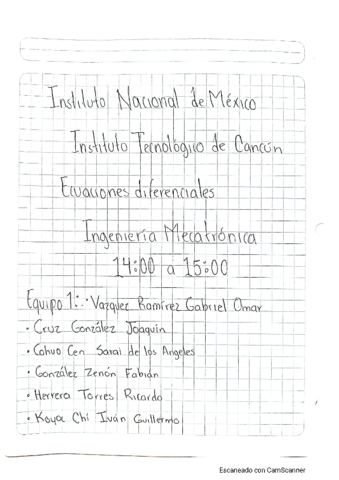 Instituto Nacional de México
Instituto Tecnológico de Cancún
Ecuaciones diferenciales
Ingeniería Mecatrónica
14:00 a 15:00
Equipo 1: · Vazquez Ramírez Gabriel Omar
· Cruz González Joaquin
· Cohuo Cen Sarai de los Angeles
· González Zenón Fabián
· Herrera Torres Ricardo
· Koyoc Chi Iván Guillermo
Escaneado con CamScanner